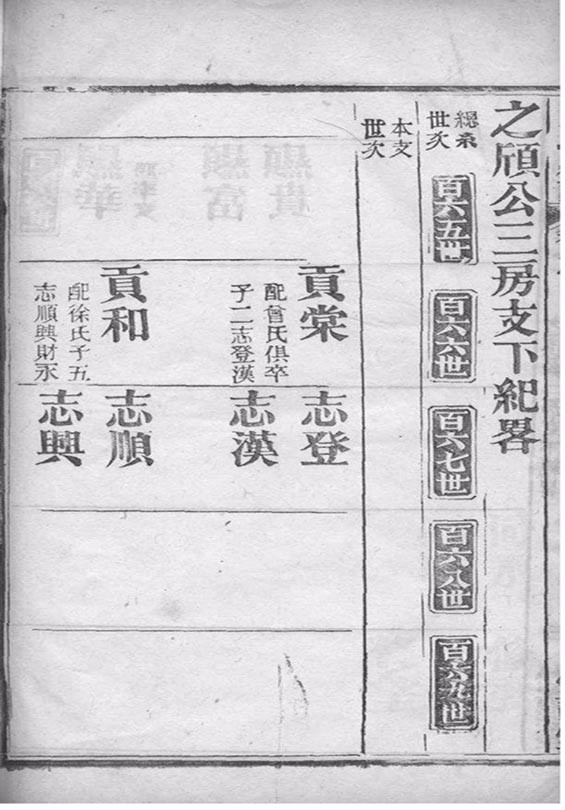 之頎公三房支下紀畧
總系
世次
百六五世
百六六世
百六七世
百六八世
百六九世
本支
世次
貢棠
配曾氏俱卒
子二志登漢
志登
志漢
貢和
配徐氏子五
志順興財永
志順
志興